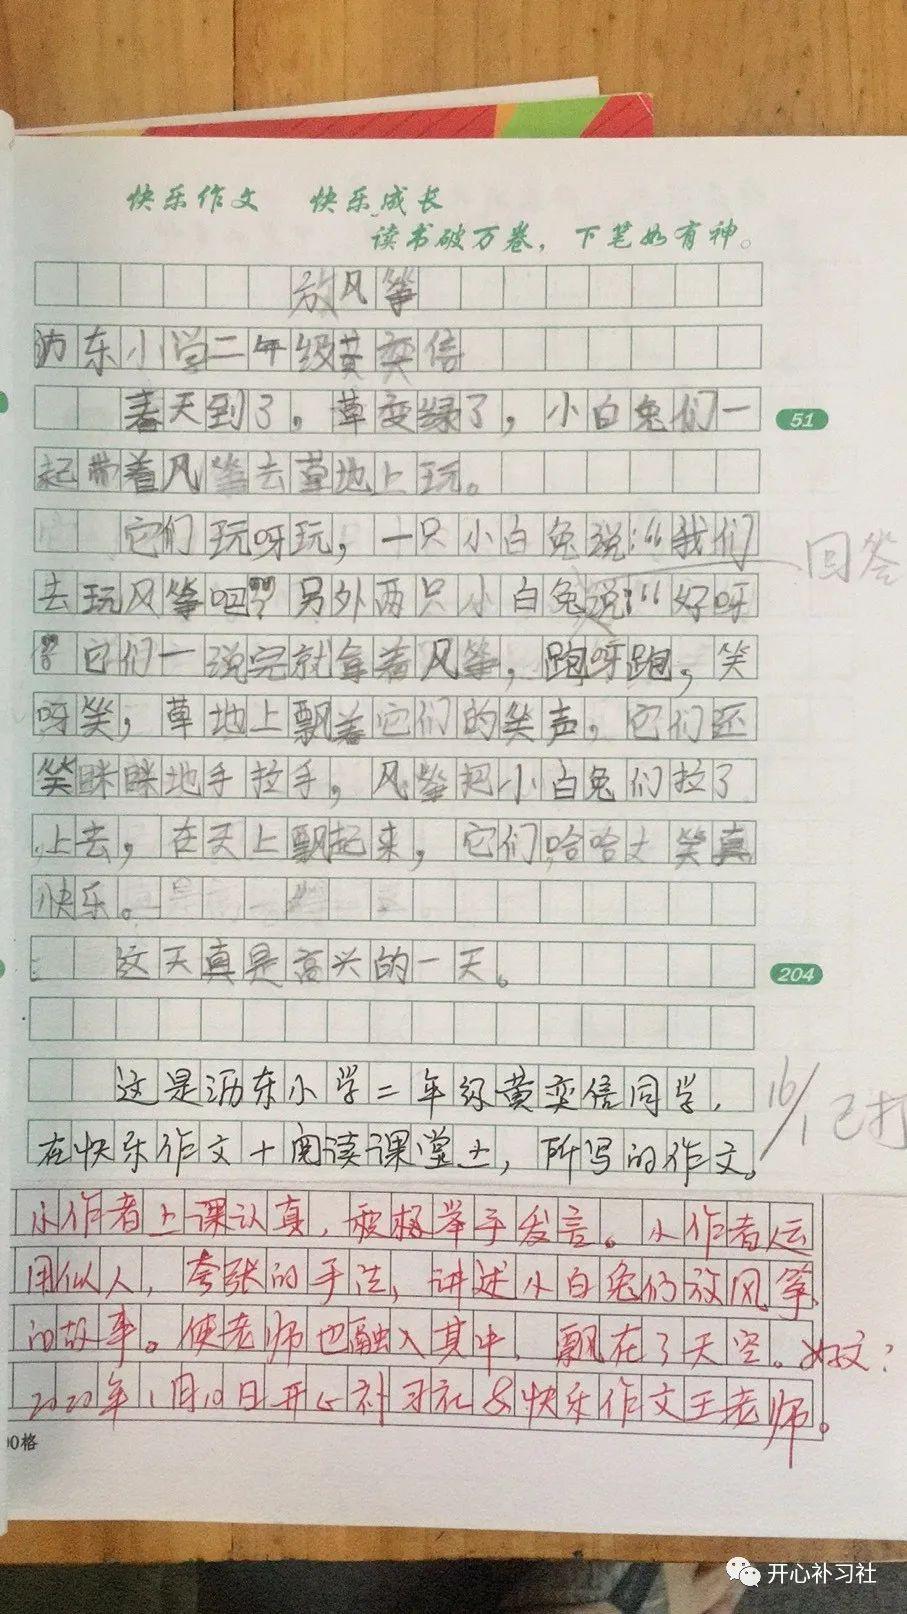 快乐作文 快乐成长
读书破万卷，下笔如有神。
放风筝
沥东小学二年级黄奕信
春天到了，草变绿了，小白兔们一
51
起带着风筝去草地上玩。
它们玩呀玩，一只小白兔说：“我们
回答
去玩风筝吧”？另外两只小白兔说：“好呀
”它们一说完就拿着风筝，跑呀跑，笑
呀笑，草地上飘着它们的笑声，它们还
笑眯眯地手拉手，风筝把小白兔们拉了
上去，在天上飘起来，它们哈哈大笑真
快乐。
这天真是高兴的一天。
204
这是沥东小学二年级黄奕信同学，
16/1已打
在快乐作文+阅读课堂上，所写的作文。
小作者上课认真，积极举手发言。小作者运
用似人，夸张的手法，讲述小白兔们放风筝
的故事。使老师也融入其中，飘在了天空。如文：
2020年1月10日开心补习社&快乐作文王老师。
00格
开心补习社